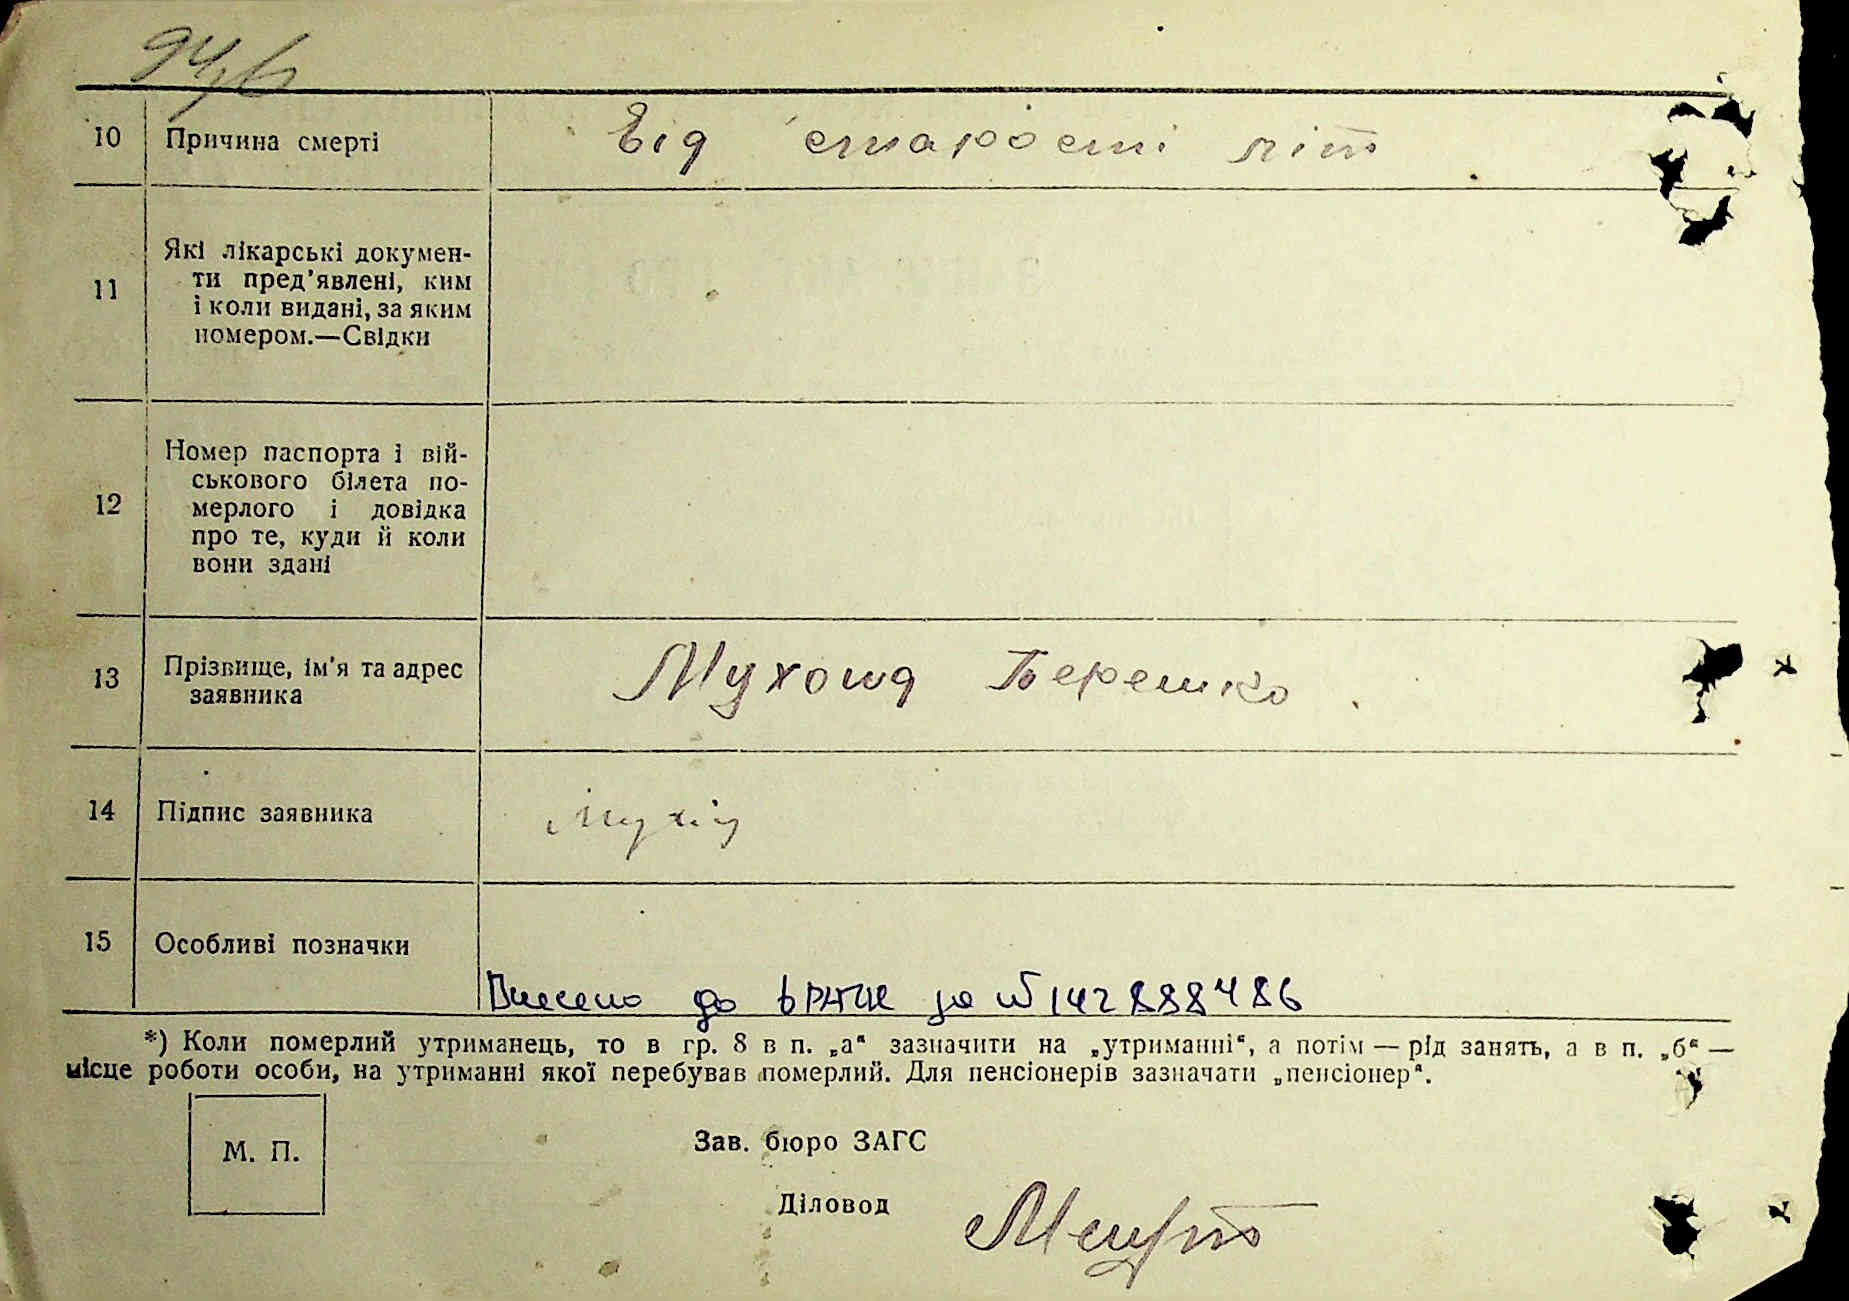 94
10 Причина смерті Від старості літ
11 Які лікарські докумен-
ти пред'явлені, ким
і коли видані, за яким
номером.—Свідки
12 Номер паспорта і вій-
ськового білета по-
мерлого і довідка
про те, куди й коли
вони здані
13 Прізвище, ім'я та адрес
заявника
Мухоид Берешко
14 Підпис заявника
15 Особливі позначки
Внесено до ДРАЦС за № 142888486
*) Коли померлий утриманець, то в гр. 8 в п. „а“ зазначити на „утриманні“, а потім — рід занять, а в п. „б“ —
місце роботи особи, на утриманні якої перебував померлий. Для пенсіонерів зазначати „пенсіонер“.
М. П.
Зав. бюро ЗАГС
Діловод